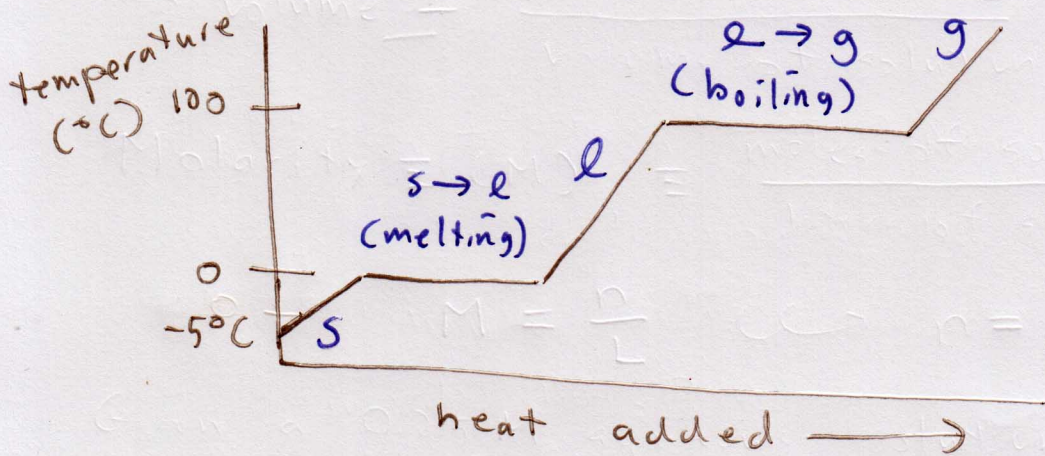 temperature
(°C)
100
0
-5°C
s
s → l
(melting)
l
l → g
(boiling)
g
heat added →
M = n
L
n =